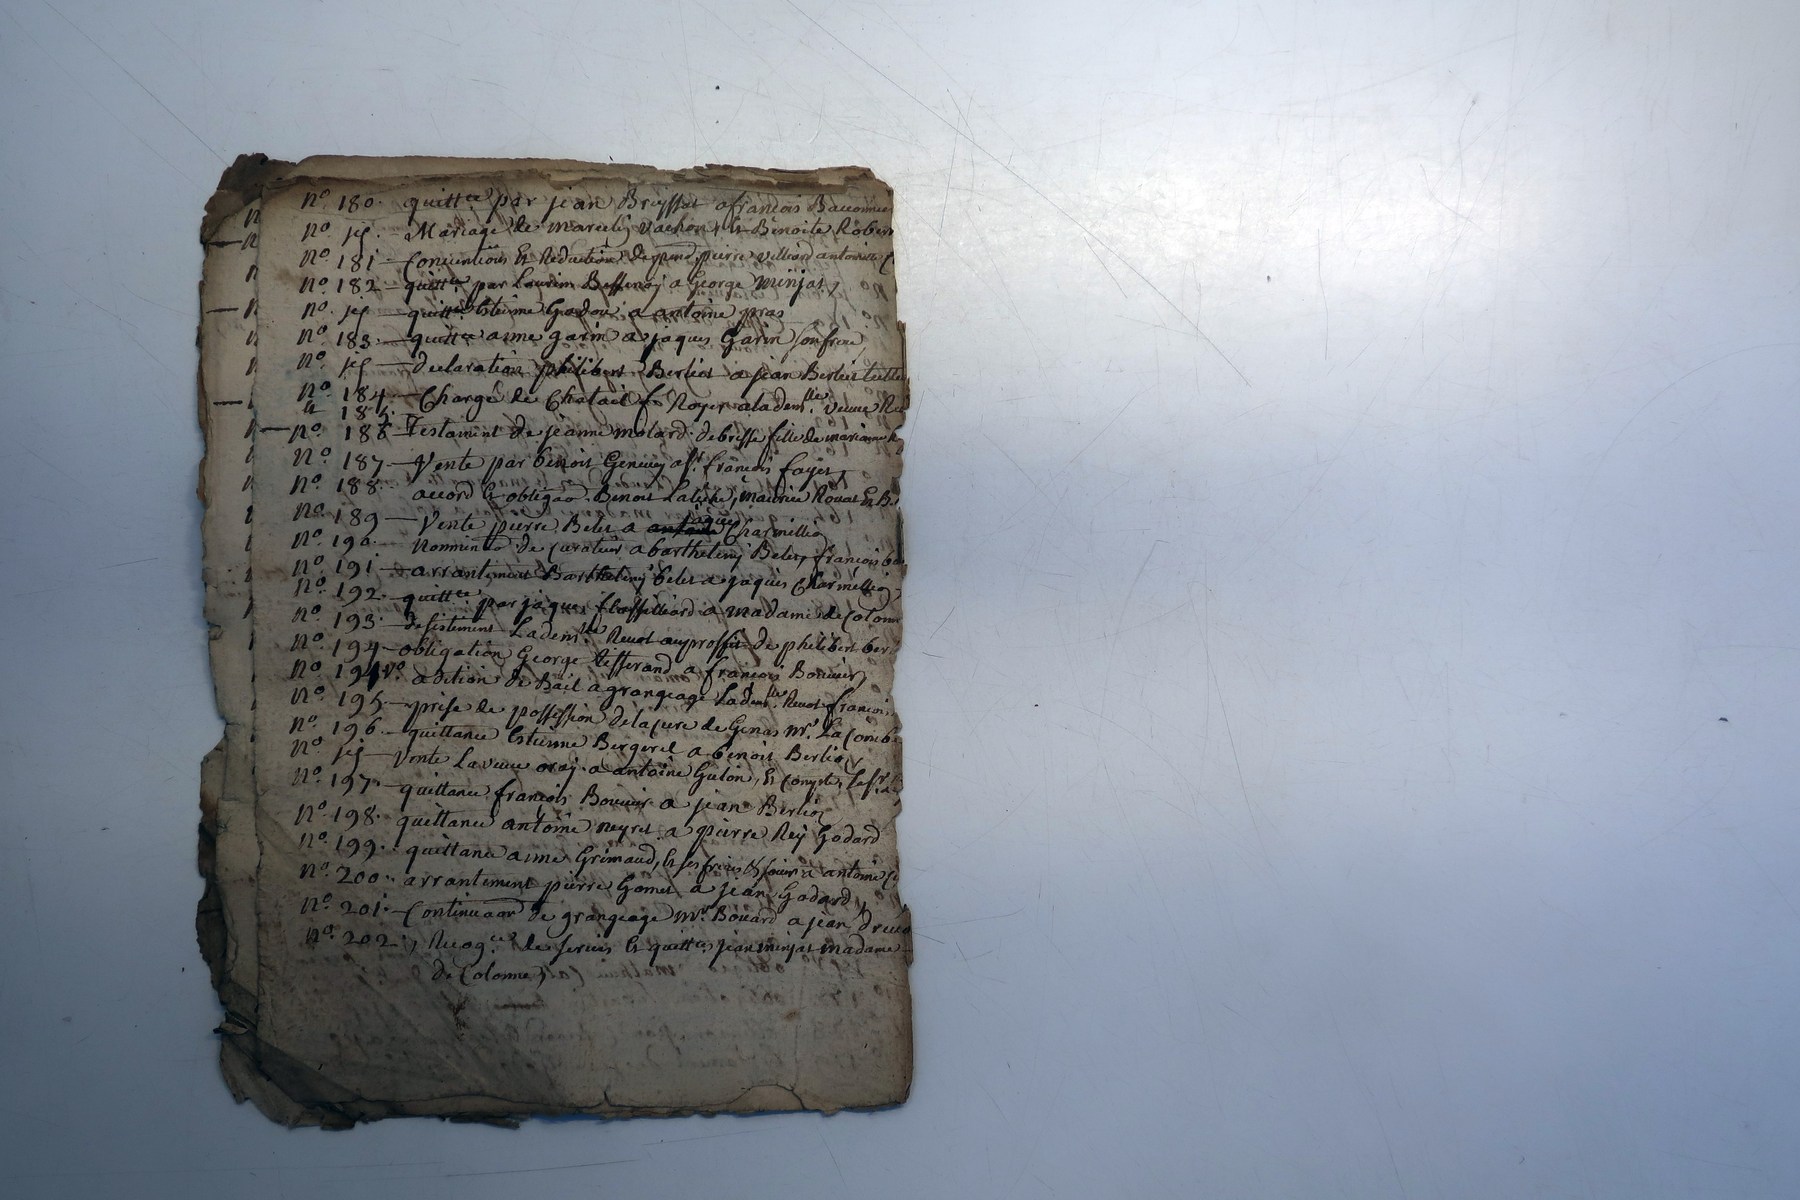 no. 180. quitt.ce par jean Bruyssat a françois Bauonnier
no. jd. — Mariage de marcelin vachon, et Benoite Rober
no. 181 — Conventions et Reduction de pierre villiard antoine
no. 182 — quitt.ce par Bessenay a George minjat
no. jd — quitt.ce Estienne Godou a antoine pras
no. 183. — quitt.ce anne garin a jaques Garin son frere
no. jd — declaration philibert Berliot a jean Berliet tutte
no. 184. — Charge de Chatail f. Noyer a la dem.lle veuve Re
& 185.
no. 186 — Testament de jeanne molard. de brisse fille de marianne
no. 187 — Vente par benoit Genevey a s.r françois fayet
no. 188. accord et obligaõ. Benoit maurice Rouat et
no. 189 — Vente pierre Belet a jaques Charmillio
no. 190. — Nomminaõ de curateur a barthelemy Belet, françois
no. 191 — arrantement Barthelemy belet a jaques Charmillio
no. 192. — quitt.ce par jaques flassilliard a Madame de Colonn
no. 193. — desistement La dem.lle Revot au proffit de philibert ber
no. 194 — obligation George tisserand a françois Bouvier
no. 194 v.o adition de Bail a grangeage La dem.lle Revot françois
no. 195 — prise de possession de la cure de Genas m.r La Combe
no. 196. quittance Estienne Bergeret a benoit Berlio
no. jd — Vente La veuve oray. a antoine Gulon, et Compte,
no. 197. — quittance françois Bouvier a jean Berlio
no. 198. quittance antoine neyret. a pierre Rey Godard
no. 199. quittance anne Grimaud, et ses freres & soeur a antoine
no. 200. arrantement pierre Gomet a jean Godard
no. 201. — Continuaõn de grangeage m.r Bouard a jean
no. 202. de servis et quitt.ce jean minjat madame
de Colonne